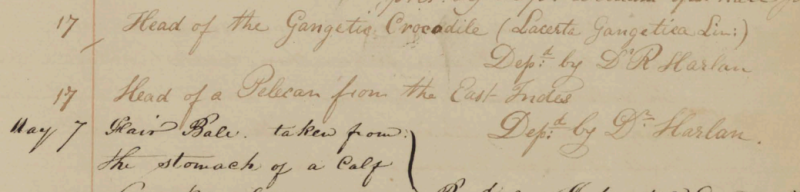 17 Head of the Gangetic Crocodile (Lacerta Gangetica Lin:)
Dep.t by Dr R Harlan
17 Head of a Pelecan from the East Indies
Dep.d by Dr. Harlan.
May 7 Hair Bale. taken from
the stomach of a Calf